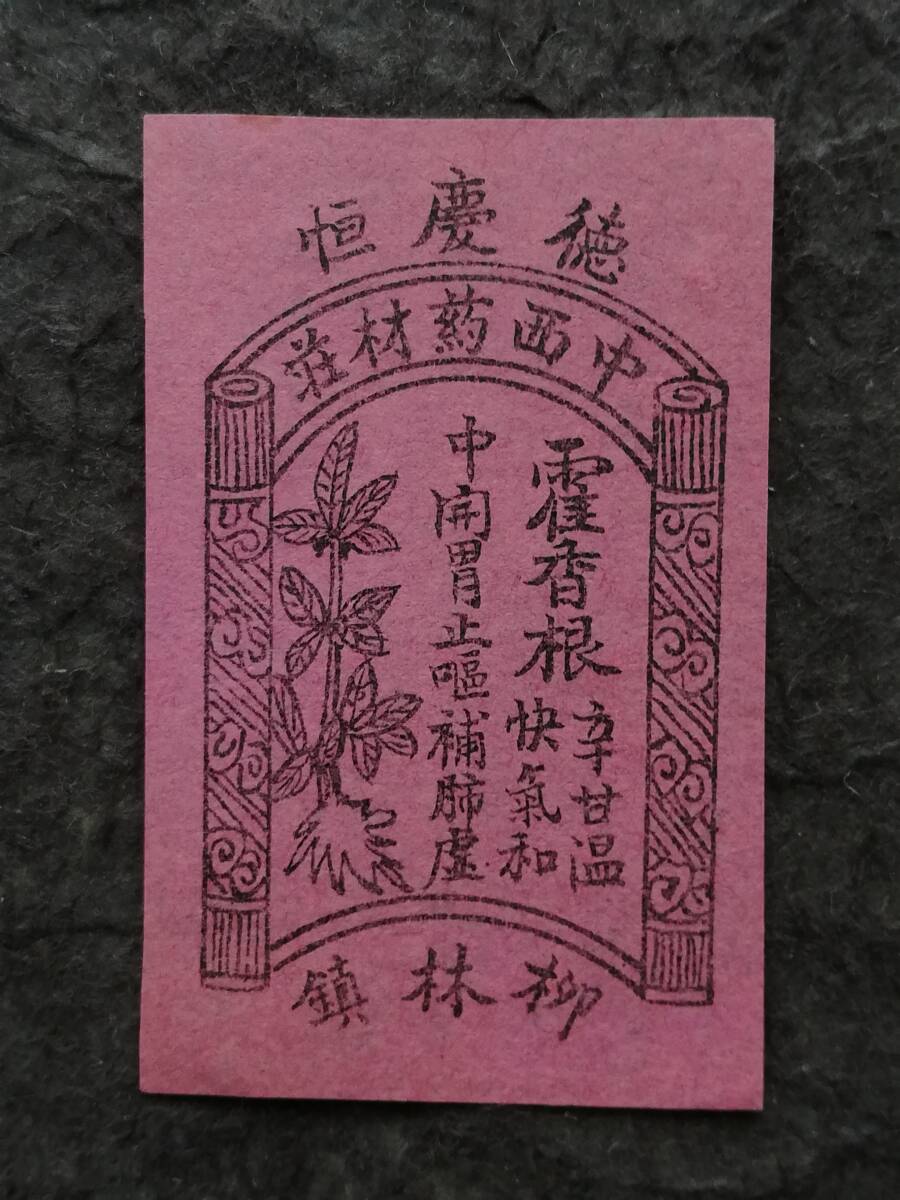 德慶恒
中西药材莊
霍香根
辛甘温
快氣和
中開胃止嘔補肺虛
柳林鎮